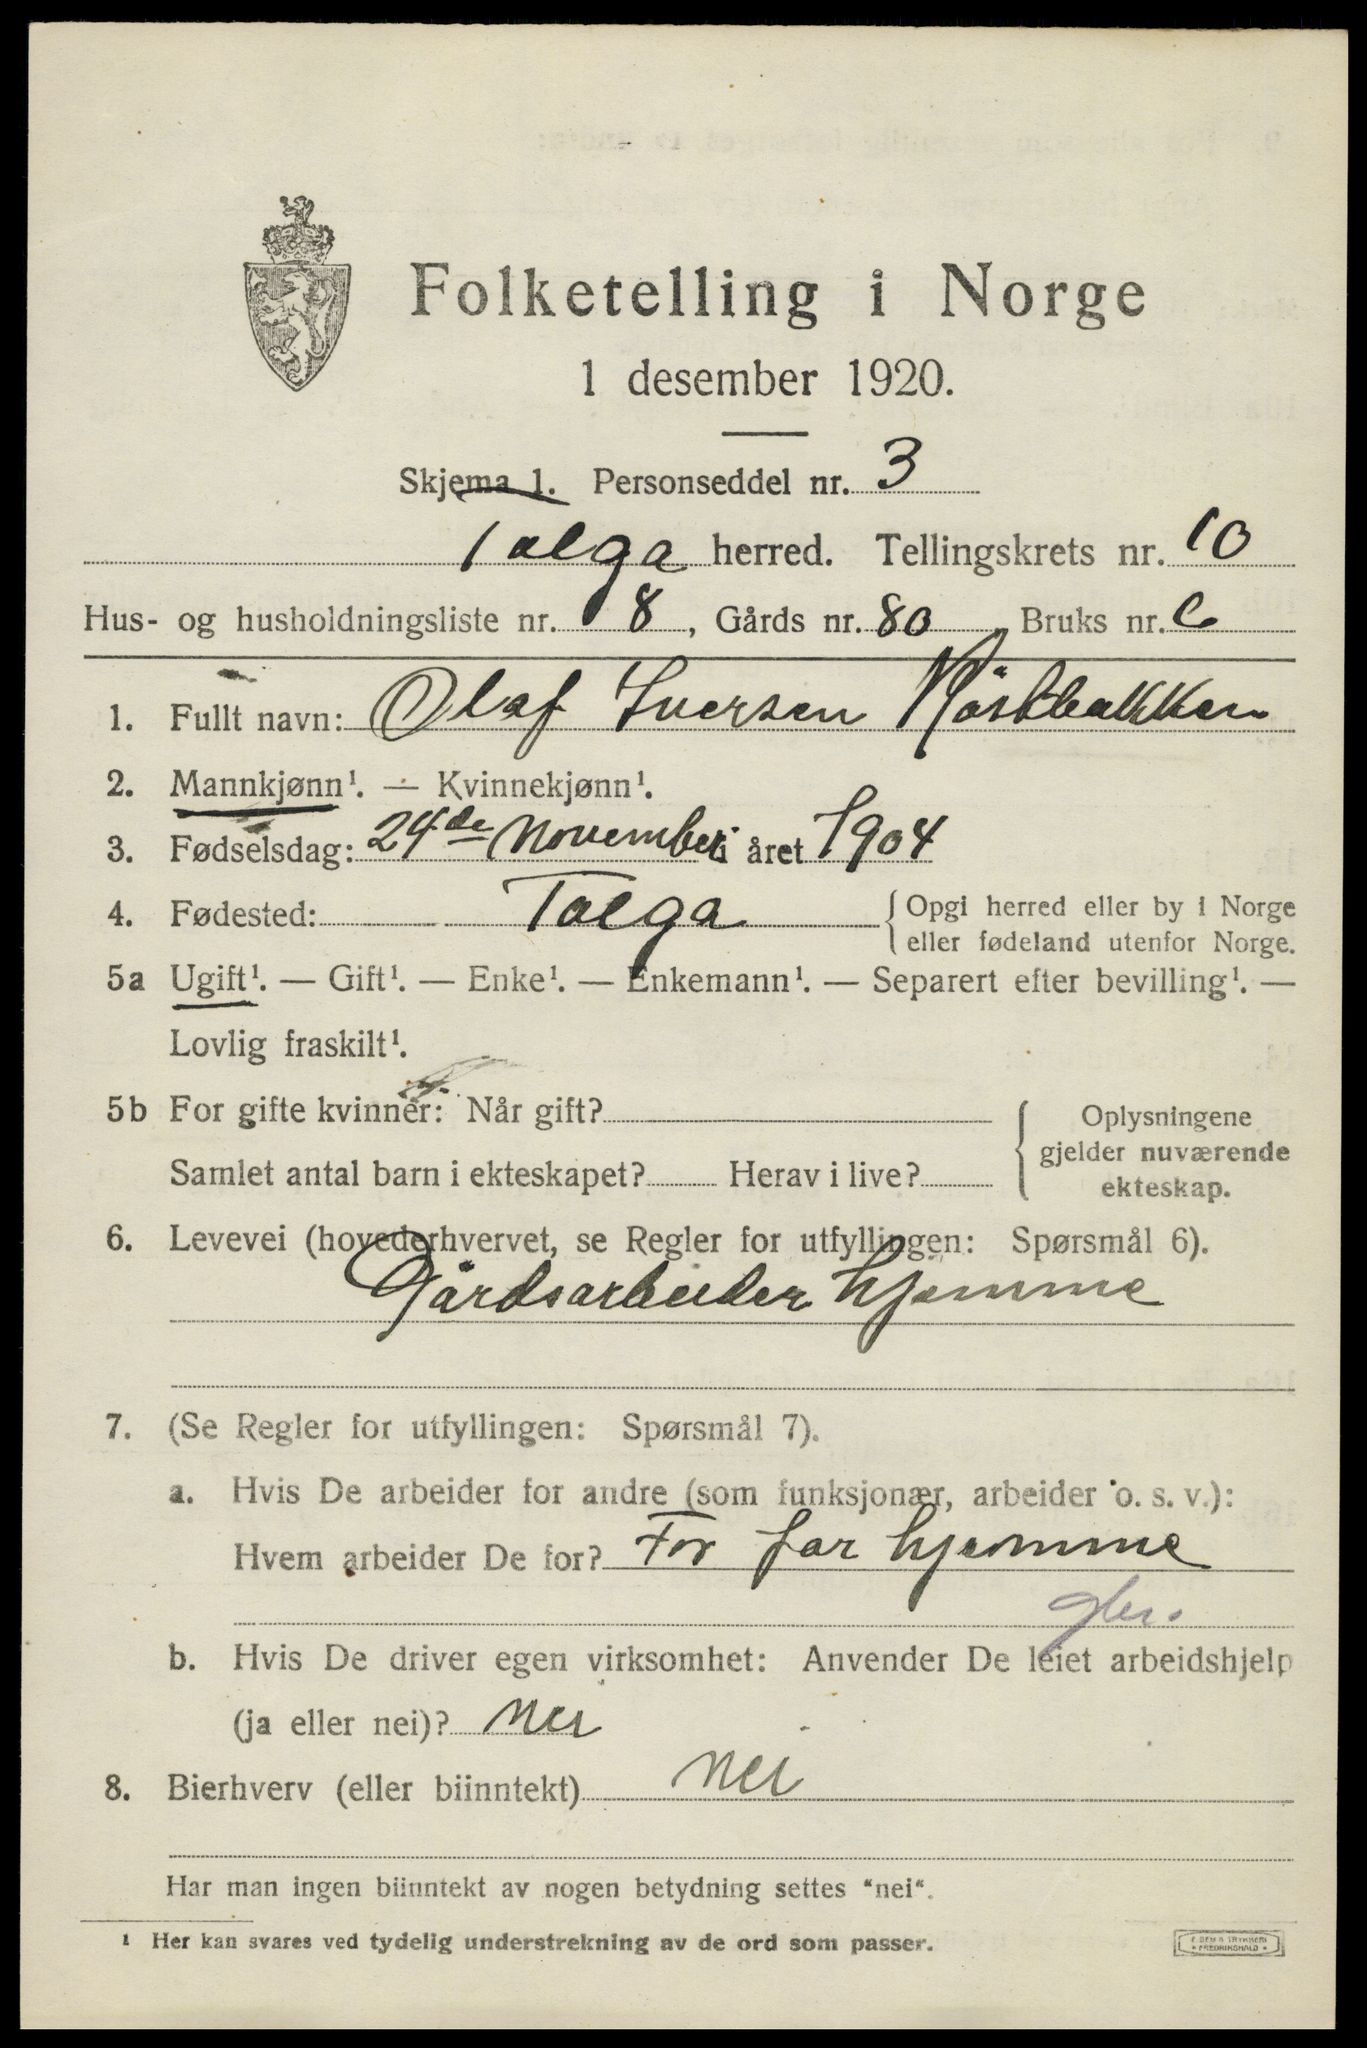 Folketelling i Norge
1 desember 1920.
Skjema 1. Personseddel nr. 3
Tolga herred. Tellingskrets nr. 10
Hus- og husholdningsliste nr. 8, Gårds nr. 80, Bruks nr.
1. Fullt navn: Olaf Iversen Röstbakken
2. Mannkjønn¹. — Kvinnekjønn¹.
3. Fødselsdag: 24de november i året 1904
4. Fødested: Tolga {Opgi herred eller by i Norge
eller fødeland utenfor Norge.
5a Ugift¹. — Gift¹. — Enke¹. — Enkemann¹. — Separert efter bevilling¹. —
Lovlig fraskilt¹.
5b For gifte kvinner: Når gift? { Oplysningene
gjelder nuværende
Samlet antal barn i ekteskapet? Herav i live?
ekteskap.
6. Levevei (hovederhvervet, se Regler for utfyllingen: Spørsmål 6).
Gårdsarbeider hjemme
7. (Se Regler for utfyllingen: Spørsmål 7).
a. Hvis De arbeider for andre (som funksjonær, arbeider o. s. v.):
Hvem arbeider De for? For far hjemme
b. Hvis De driver egen virksomhet: Anvender De leiet arbeidshjelp
(ja eller nei)? nei
8. Bierhverv (eller biinntekt) nei
Har man ingen biinntekt av nogen betydning settes "nei".
¹ Her kan svares ved tydelig understrekning av de ord som passer.